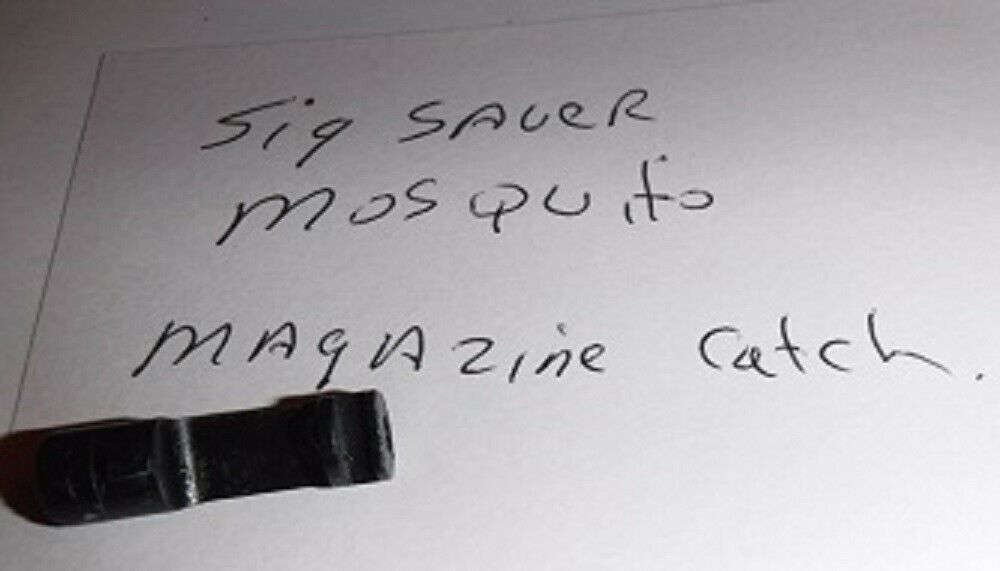 Sig SAUER
MOSQUito
MAgAzine Catch.